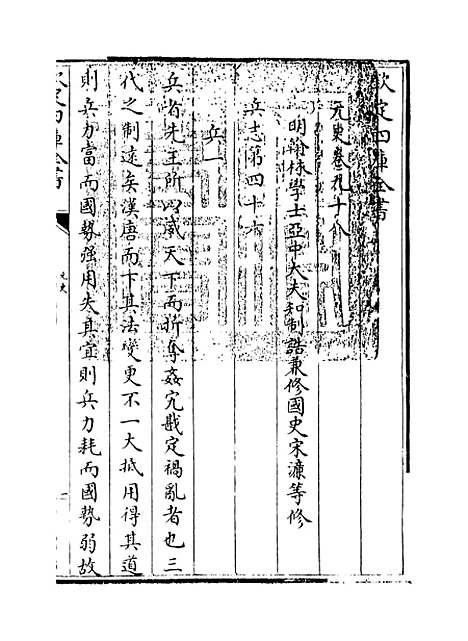 欽定四庫全書
元史卷九十八
明翰林學士亞中大夫知制誥兼修國史宋濂等修
兵志第四十六
兵一
兵者先王所以威天下而折奪姦宄戡定禍亂者也三
代之制遠矣漢唐而下其法變更不一大抵用得其道
則兵力富而國勢强用失其宜則兵力耗而國勢弱故
欽定四庫全書
元史
一